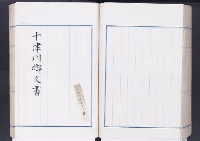 十津川郷文書